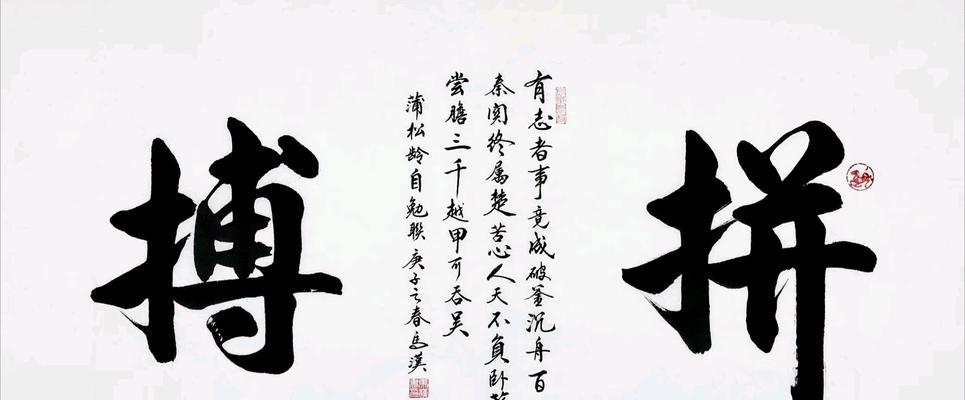 拼
有志者事竟成破釜沉舟百
秦関终属楚苦心人天不负卧
尝膽三千越甲可吞吴
蒲松龄自勉联庚子之春马漢
搏